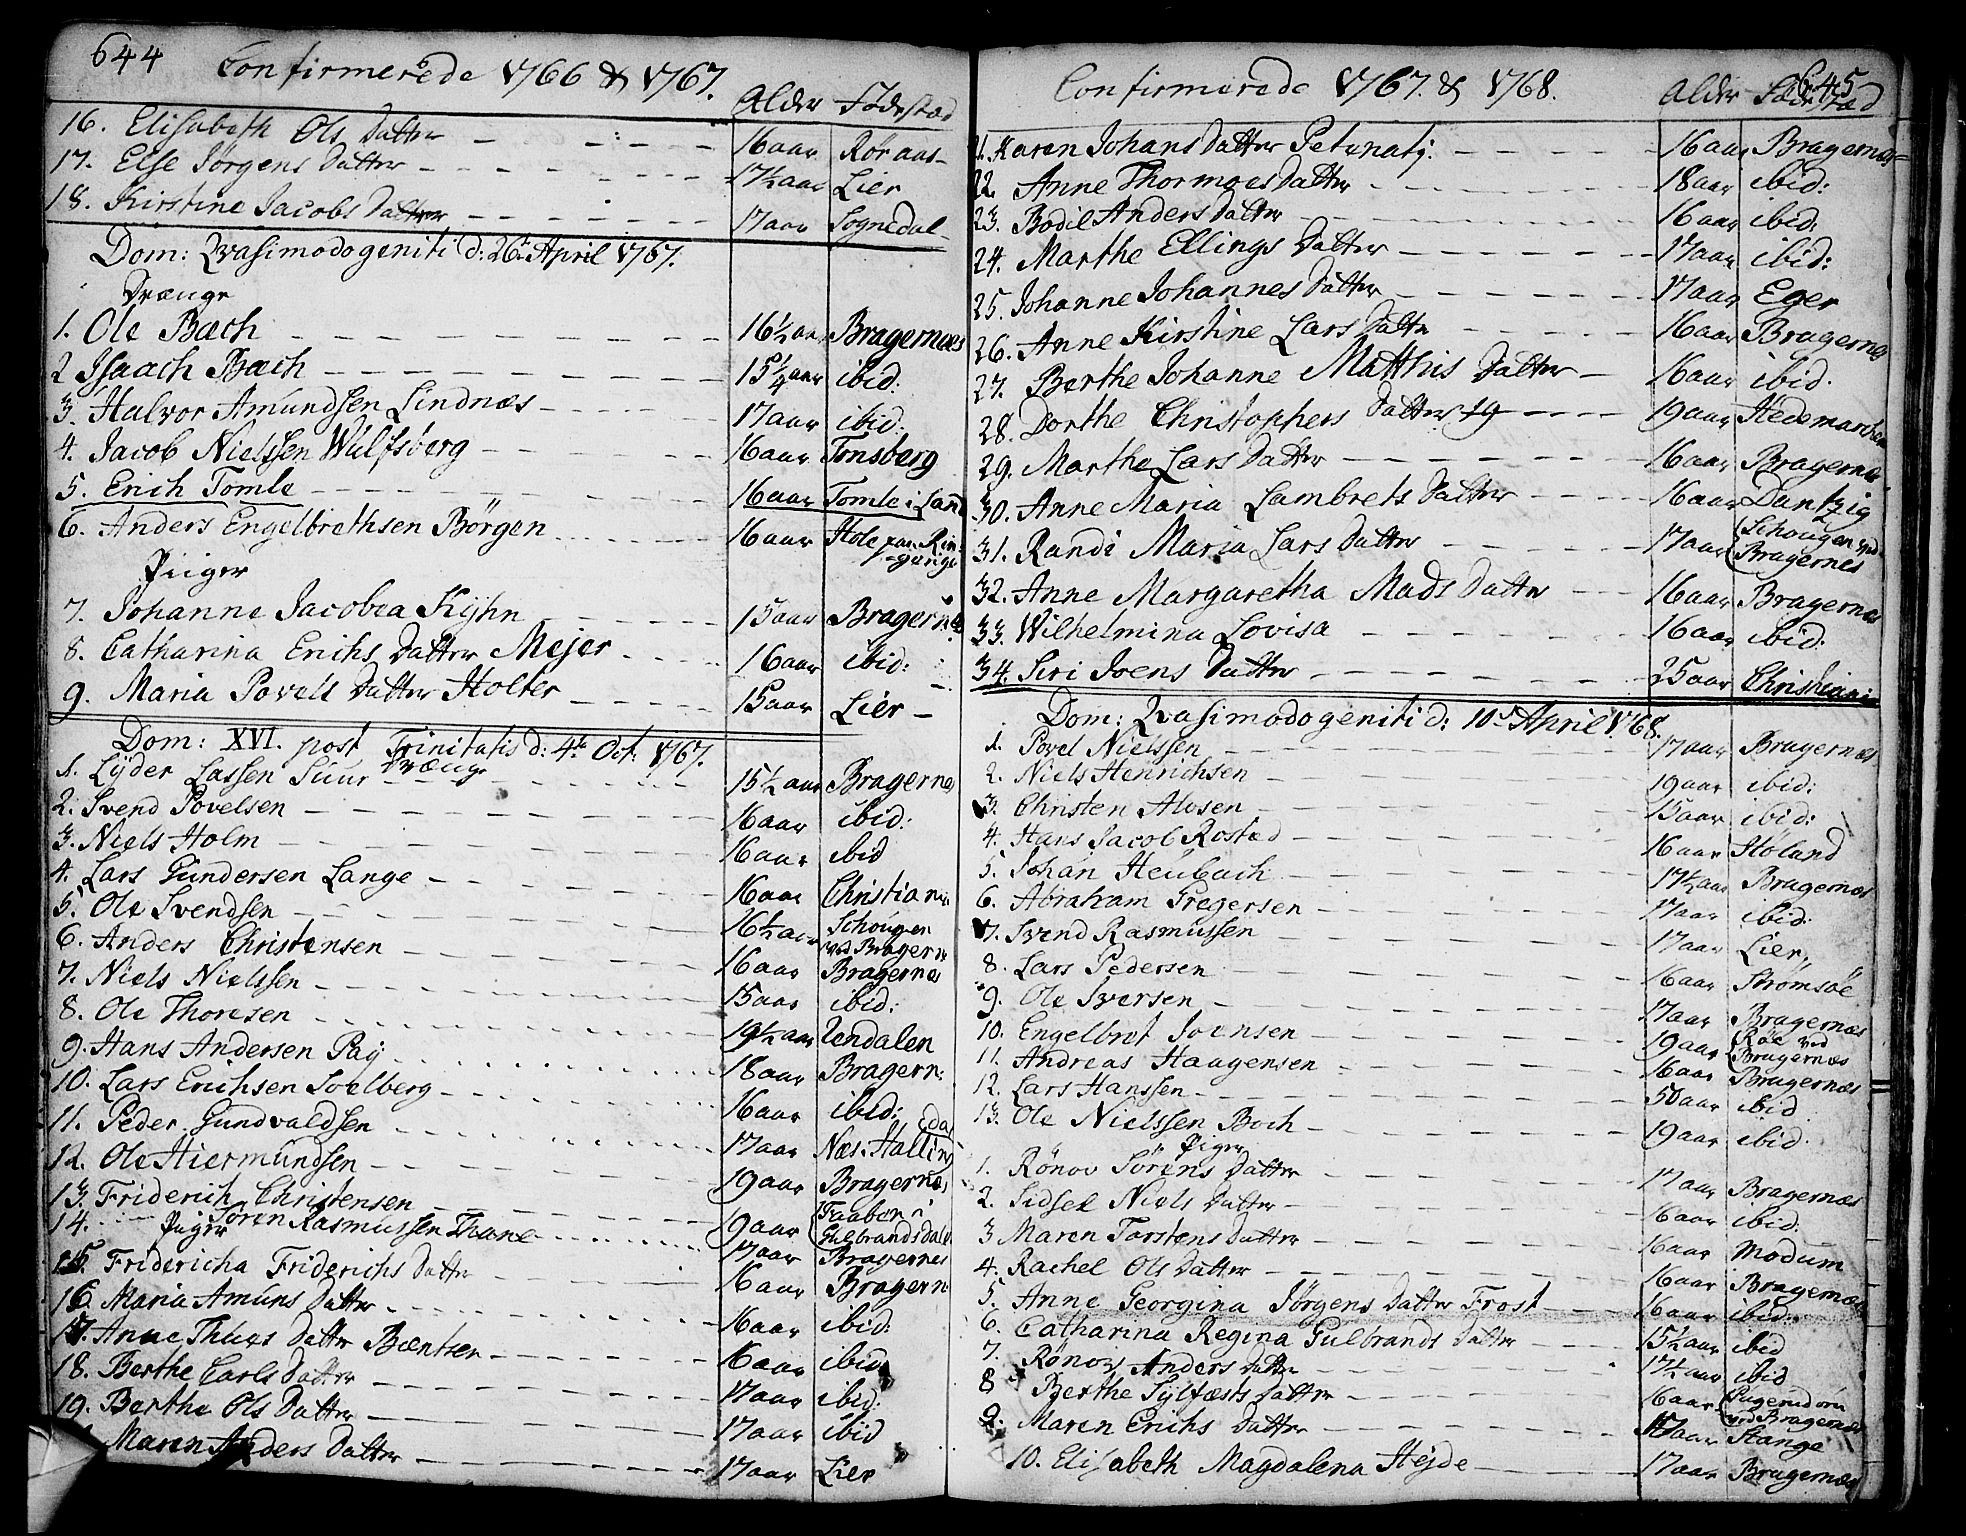 644
Confirmerede 1766 & 1767.
Alder Födestæd
16. Elisabeth Ols Datter - - - - 16 aar Röraas-
17. Else Jörgens Datter - - - - 17½ aar Lier
18. Kirstine Jacobs Datter - - - - 17 aar Sognedal-
Dom: Qvasimodogeniti d: 26 April 1767.
Drænge
1. Ole Bæch - - - - 16½ aar Bragernæs
2 Isaach Bæch - - - - 15¼ aar ibid:
3. Halvor Amundsen Lindnæs - - - - 17 aar ibid:
4. Jacob Nielssen Wulfsberg - - - - 16 aar Tonsberg
5. Erich Tomle - - - - 16 aar Tomle i Land
6. Anders Engelbrethsen Börgen - - - - 16 aar Hole paa Rin-
gerige
Piiger
7. Johanne Jacobea Kyhn - - - - 15 aar Bragernæs
8. Catharina Erichs Datter Mejer - - - - 16 aar ibid:
9. Maria Povels Datter Holter - - - - 15 aar Lier -
Dom: XVI. post Trinitatis d: 4de Oct: 1767.
Drænge
1. Lyder Lassen Suur - - - - 15½ aar Bragernæs
2. Svend Povelsen - - - - 16 aar ibid:
3. Niels Holm - - - - 16 aar ibid
4. Lars Gundersen Lange - - - - 16 aar Christiania
5. Ole Svendsen - - - - 16½ aar Schougen
ved Bragernæs
6. Anders Christensen - - - - 16 aar Bragernæs
7. Niels Nielssen - - - - 15 aar ibid:
8. Ole Thoresen - - - - 19½ aar Rendalen
9. Hans Andersen Pay - - - - 18 aar Bragern:
10. Lars Erichsen Soelberg - - - - 16 aar ibid:
11. Peder Gundvaldsen - - - - 17 aar Næs: Halling
dal
12. Ole Hiermundsen - - - - 19 aar Bragernæs
13. Friderich Christensen - - - - 19 aar Faaber i
Gulbrandsdal
14. Sören Rasmussen Thane - - - - 17 aar Bragernes
Piiger
15. Fridericha Friderichs Datter - - - - 16 aar Bragern
16. Maria Amuns Datter - - - - 16 aar ibid:
17. Anne Thues Datter Bæntsen - - - - 16 aar ibid
18. Berthe Carls Datter - - - - 17 aar ibid:
19. Berthe Ols Datter - - - - 17 aar ibid
Maren Anders Datter - - - - 17 aar Lier
645
Confirmerede 1767. & 1768.
Alder Födestæd
21. Karen Johans Datter - - - - 16 aar Bragernæs-
22. Anne Thormoes Datter - - - - 18 aar ibid:
23. Bodil Anders Datter - - - - 16 aar ibid:
24. Marthe Ellings Datter - - - - 17 aar ibid:
25. Johanne Johannes Datter - - - - 17 aar Eger
26. Anne Kirstine Lars Datter - - - - 16 aar Bragernæs
27. Berthe Johanne Matthis Datter - 16 aar ibid.
28. Dorthe Christophers Datter 19 - - - - 19 aar Hedemarchen
29. Marthe Lars Datter - - - - 16 aar Bragernæs
30. Anne Maria Lambrets Datter - - - - 16 aar Dantzig
31. Randi Maria Lars Datter - - - - 17 aar Schougen ved
Bragernes
32. Anne Margaretha Mads Datter - - - - 16 aar Bragernæs
33. Wilhelmina Lovisa - - - - 16 aar ibid:
34. Siri Joens Datter - - - - 25 aar Christiania
Dom: Qvasimodogeniti d: 10de April 1768.
1. Povel Nielssen - - - - 17 aar Bragernæs
2. Niels Henrichsen - - - - 19 aar ibid:
3. Christen Alvsen - - - - 15 aar ibid:
4. Hans Jacob Rostad - - - - 16 aar Höland
5. Johan Heubach - - - - 17½ aar Bragernæs
6. Abraham Gregersen - - - - 17 aar ibid:
7. Svend Rasmussen - - - - 17 aar Lier,
8. Lars Pedersen - - - - 16 aar Strömsöe
9. Ole Iversen - - - - 17 aar Bragernæs
10. Engelbret Joensen - - - - 19 aar Röe ved
Bragernæs
11. Andreas Haagensen - - - - 16 aar Bragernæs
12. Lars Hanssen - - - - 50 aar ibid
13. Ole Nielssen Boch - - - - 19 aar ibid.
Piger
1. Rönov Sörens Datter - - - - 17 aar Bragernæs
2. Sidsel Niels Datter - - - - 16 aar ibid:
3 Maren Torstens Datter - - - - 16 aar Modum
4. Rachel Ols Datter - - - - 16 aar Bragernæs
5. Anne Georgina Jörgens Datter Frost - - - - 16 aar ibid:
6. Catharina Regina Gulbrands Datter - - - - 15½ aar ibid
7. Rönov Anders Datter - - - - 17½ aar ibid
8 Berthe Sylfæsts Datter - - - - 16 aar
ved Bragernæs
9. Maren Erichs Datter - - - - 17 aar Stange
10. Elisabeth Magdalena Hejde - - - - 17 aar Bragernæs